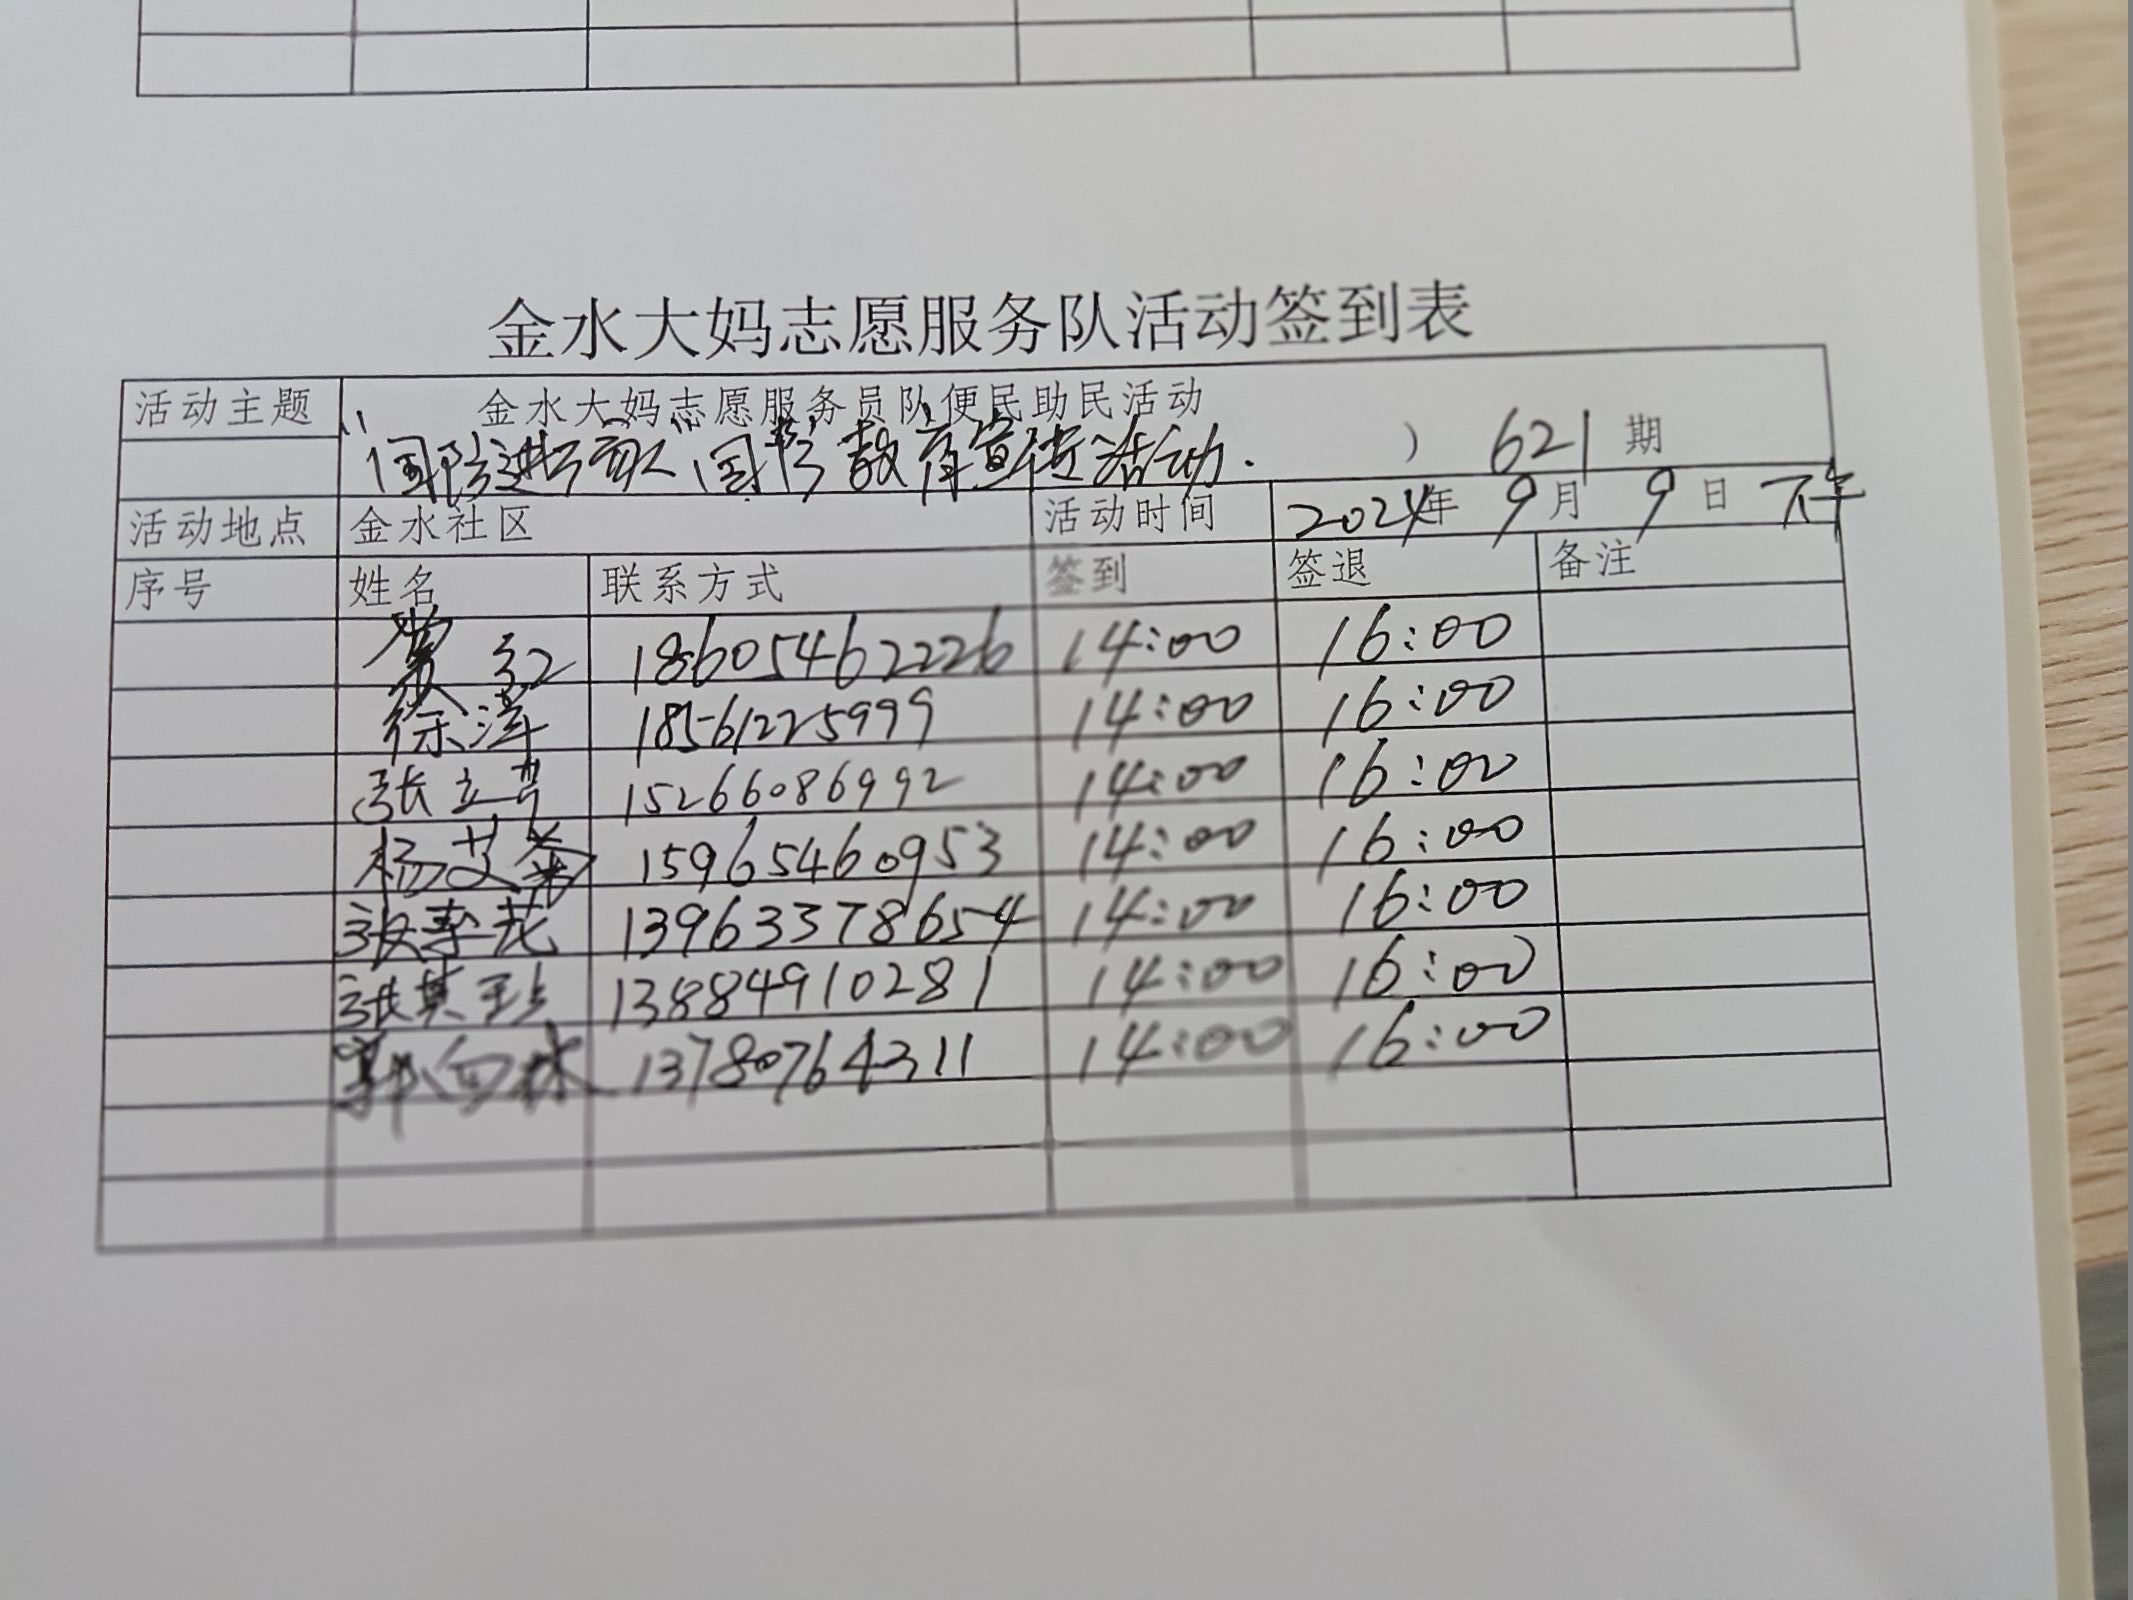 金水大妈志愿服务队活动签到表
活动主题 金水大妈志愿服务员队便民助民活动
"国防进万家"国防教育宣传活动. ) 621 期
活动地点 金水社区 活动时间 2024年 9月 9日 下午
序号 姓名 联系方式 签到 签退 备注
18605462226 14:00 16:00
徐萍 18561225999 14:00 16:00
张立芳 15266086992 14:00 16:00
杨艾菊 15965460953 14:00 16:00
张季花 13963378654 14:00 16:00
张其珍 13884910281 14:00 16:00
郭向林 13780764311 14:00 16:00